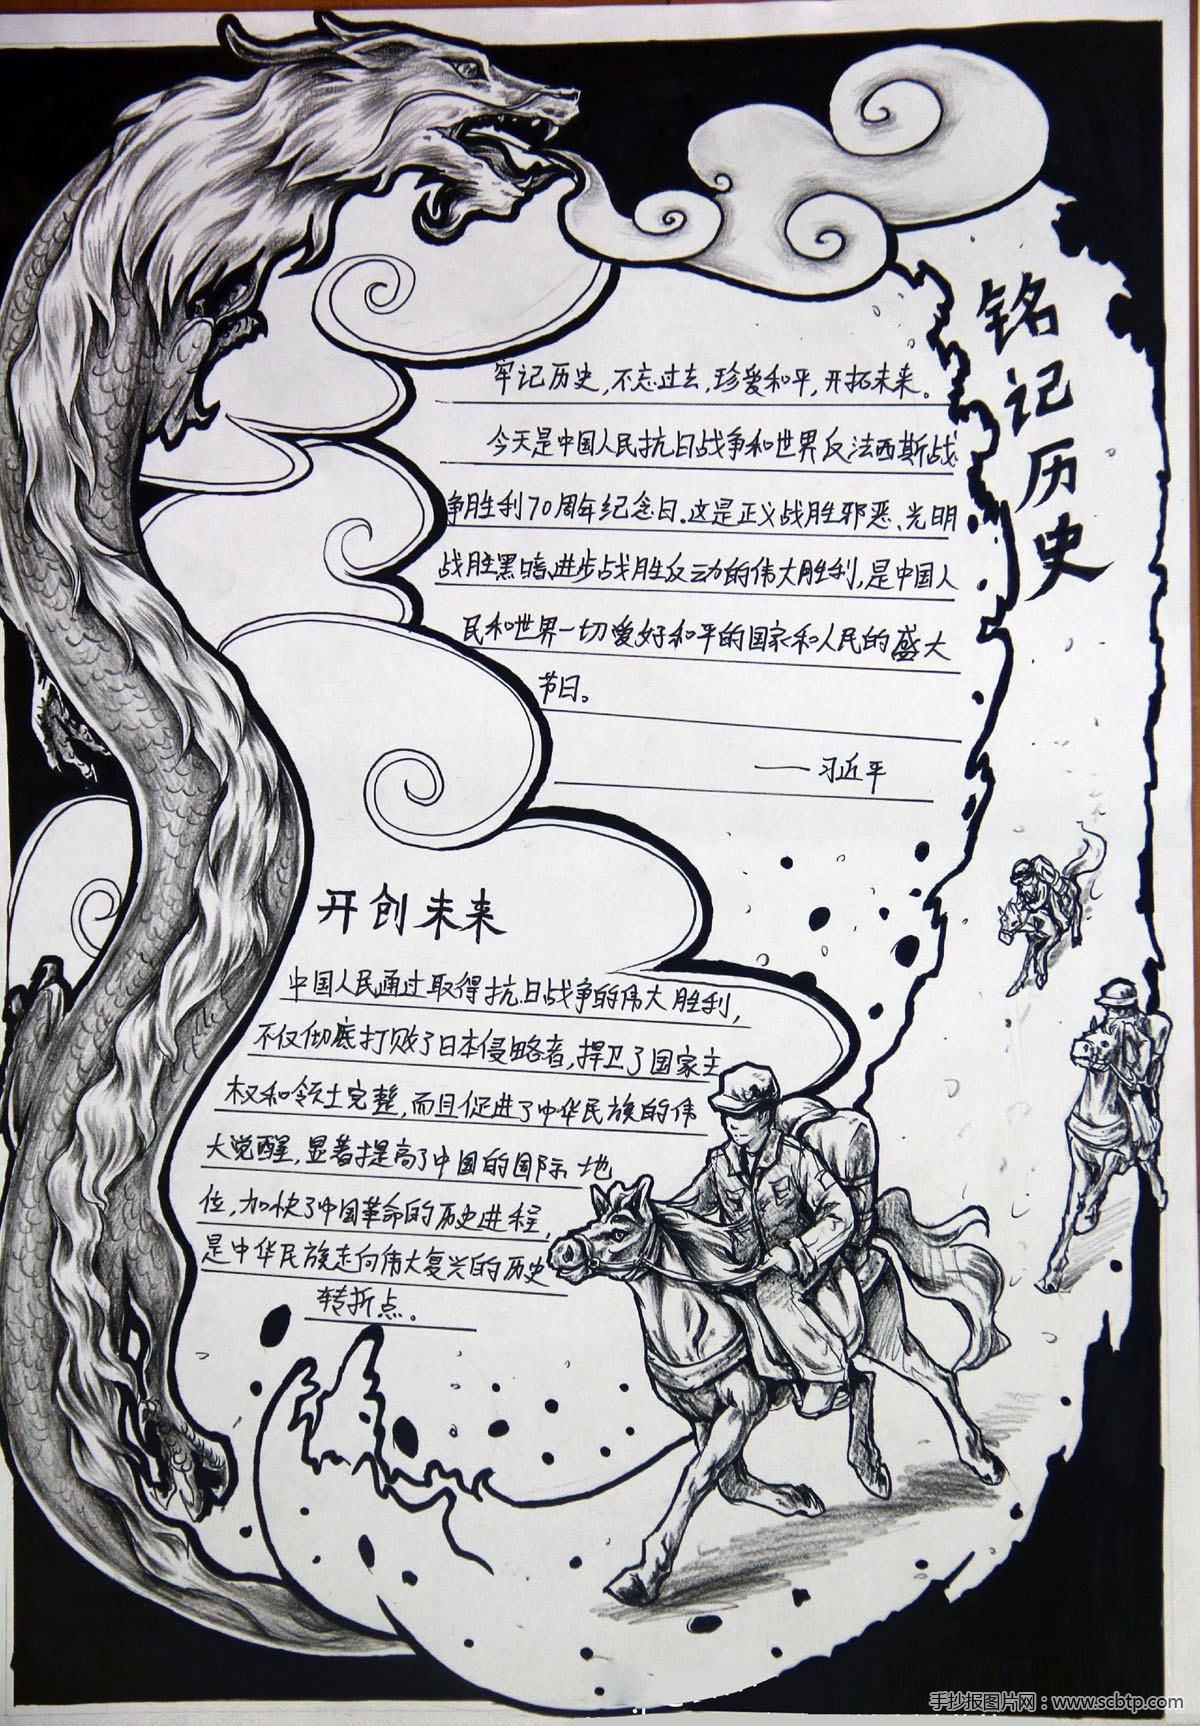 铭记历史
牢记历史，不忘过去，珍爱和平，开拓未来。
今天是中国人民抗日战争和世界反法西斯战
争胜利70周年纪念日。这是正义战胜邪恶、光明
战胜黑暗、进步战胜反动的伟大胜利，是中国人
民和世界一切爱好和平的国家和人民的盛大
节日。
——习近平
开创未来
中国人民通过取得抗日战争的伟大胜利，
不仅彻底打败了日本侵略者，捍卫了国家主
权和领土完整，而且促进了中华民族的伟
大觉醒，显著提高了中国的国际地
位，加快了中国革命的历史进程，
是中华民族走向伟大复兴的历史
转折点。
手抄报图片网：www.scbtp.com